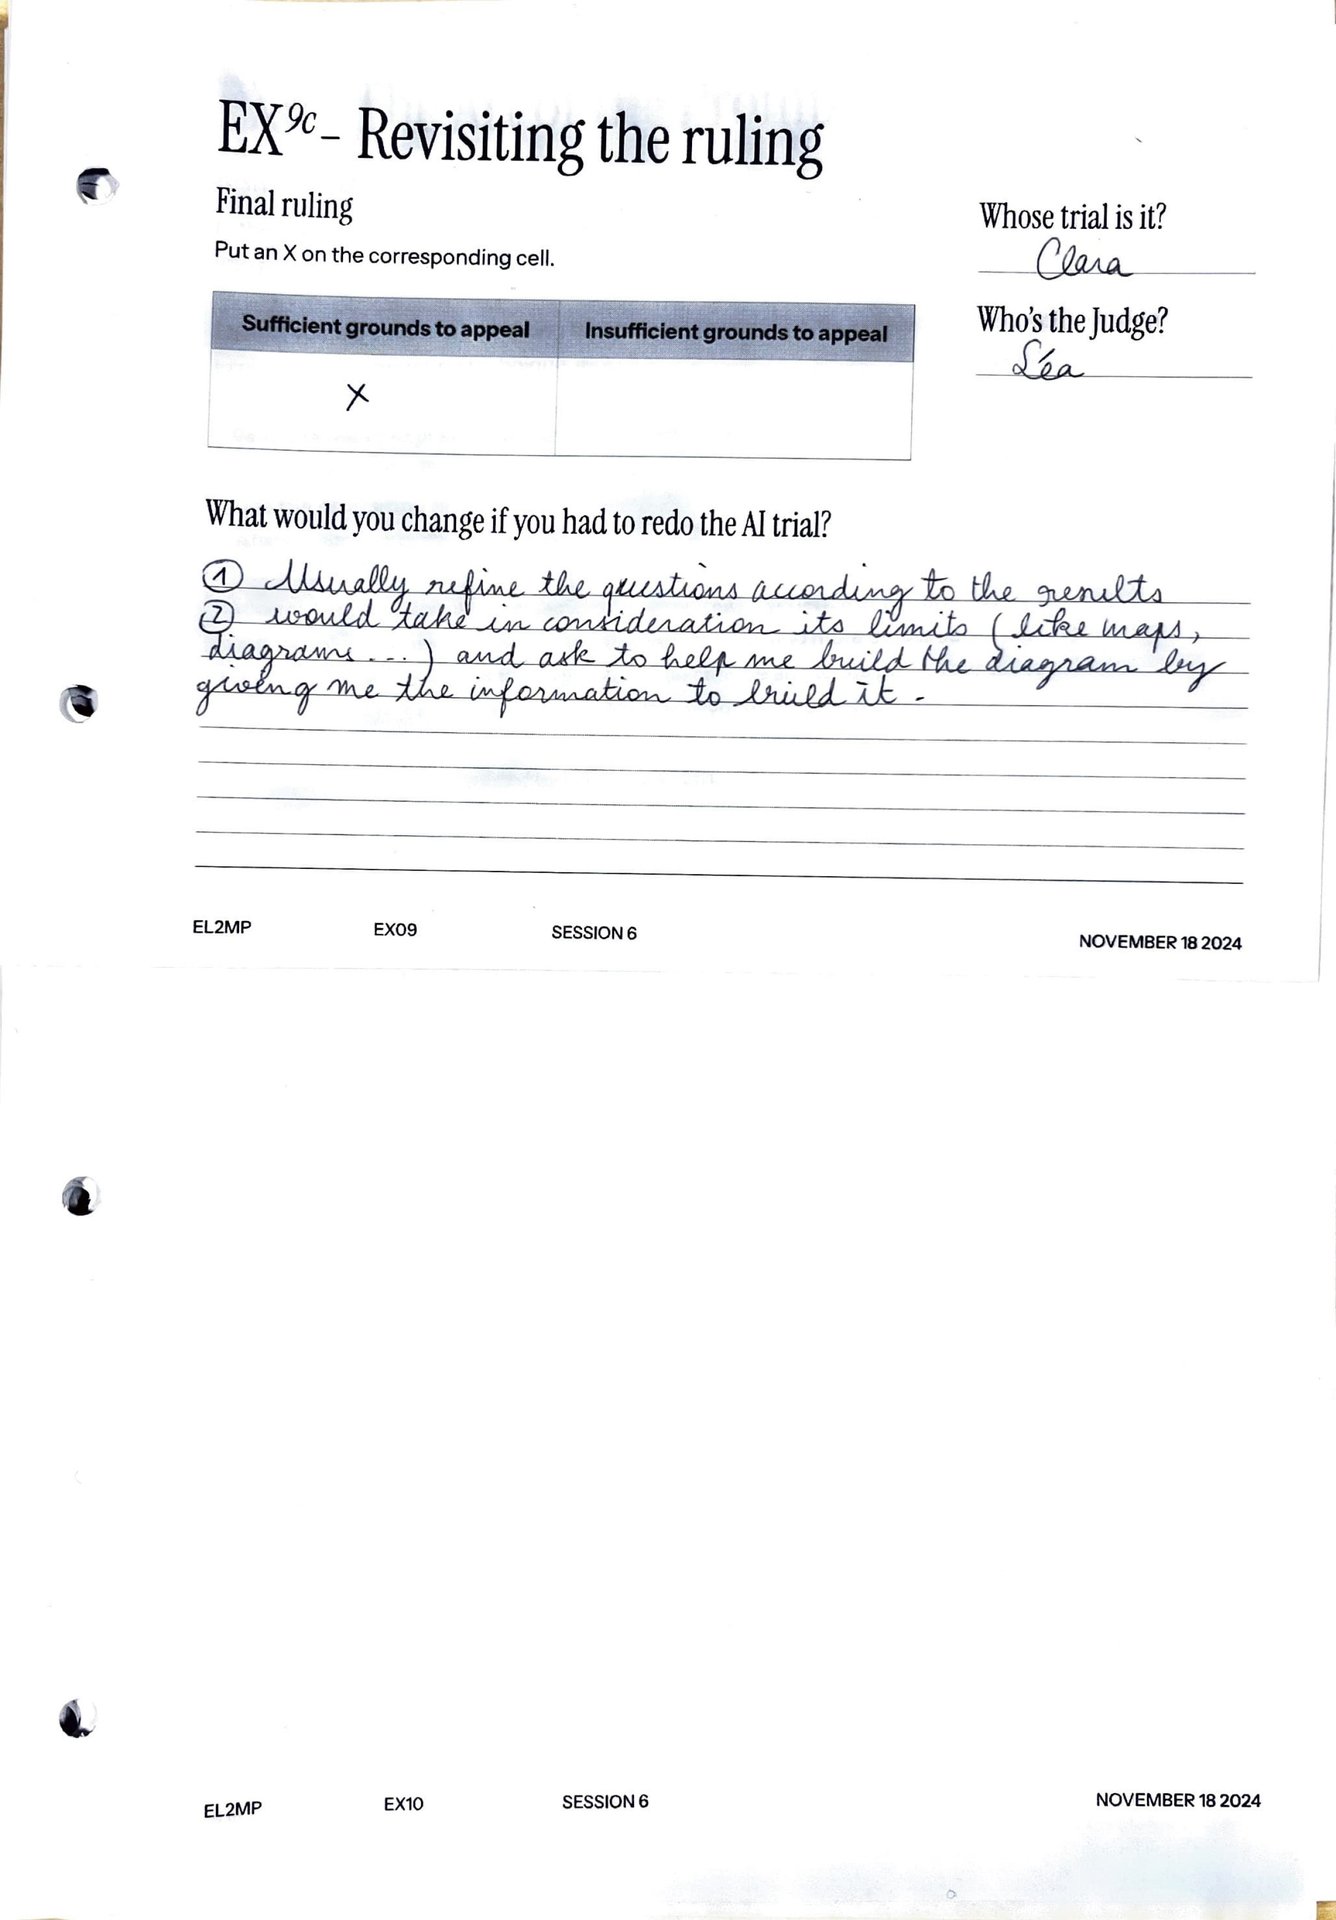 EX9c – Revisiting the ruling
Final ruling
Put an X on the corresponding cell.
Whose trial is it?
Clara
Who's the Judge?
Léa
Sufficient grounds to appeal
Insufficient grounds to appeal
X
What would you change if you had to redo the AI trial?
① Usually refine the questions according to the results
② would take in consideration its limits (like maps,
diagrams...) and ask to help me build the diagram by
giving me the information to build it.
EL2MP EX09 SESSION 6 NOVEMBER 18 2024
EL2MP EX10 SESSION 6 NOVEMBER 18 2024